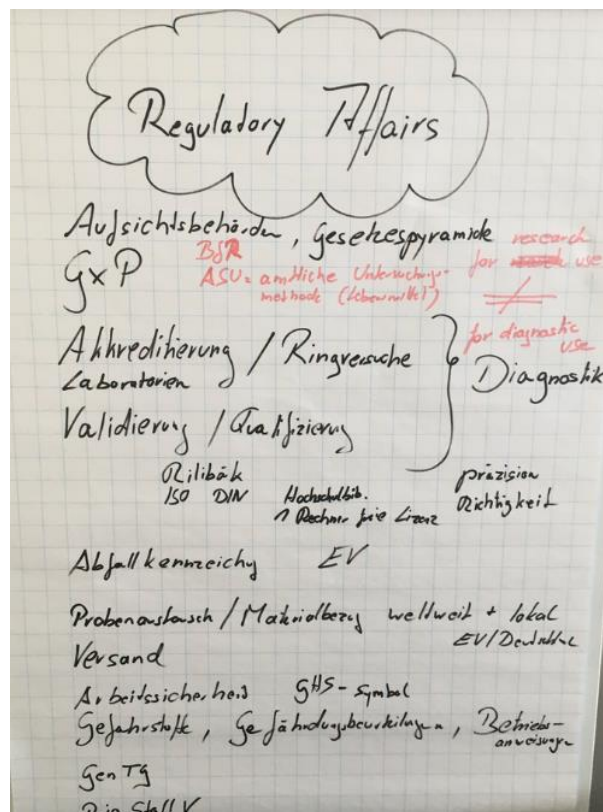 Regulatory Affairs
Aufsichtsbehörden, Gesetzespyramide
research
for use
GxP
BfR
ASU = amtliche Untersuchungs-
methode (Lebensmittel)
≠
for diagnostic
use
Akkreditierung / Ringversuche
Laboratorien
Diagnostik
Validierung / Qualifizierung
Rilibäk
ISO DIN
Hochschulbib.
1 Rechner freie Lizenz
präzision
Richtigkeit
Abfallkennzeichg EU
Probenaustausch / Materialbezug weltweit + lokal
EU/Deutschland
Versand
Arbeitssicherheit GHS-Symbol
Gefahrstoffe, Gefährdungsbeurteilungen, Betriebs-
anweisungen
GenTG
BioStoffV